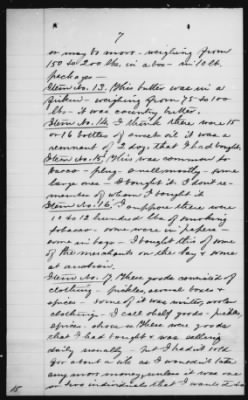 7
or may be more - weighing from
150 to 200 lbs. in a box - in 10 lb.
packages -
Item No. 13. This butter was in a
firkin - weighing from 75 to 100
lbs - it was country butter.
Item No. 14. I think there were 15
or 16 bottles of sweet oil it was a
remnant of 2 doz. that I had bought
Item No. 15. This was common to-
bacco - plug - mostly - some
large ones - I bought it. I dont re-
member of whom I bought it
Item No. 16. I suppose there were
10 to 12 hundred lbs of smoking
tobacco. some were in papers -
some in bags - I bought this of some
of the merchants on the bay & some
at auction.
Item No. 17. These goods consisted of
clothing - pickles, several boxes &
spices - some of it was winter, worlen
clothing - I call shelf goods - pickles,
spices - shoes - These were goods
that I had bought & was selling
daily usually - but I had not sold
for about a wk as I wouldn't take
any more money, unless it was one
or two individuals that I wanted to
15